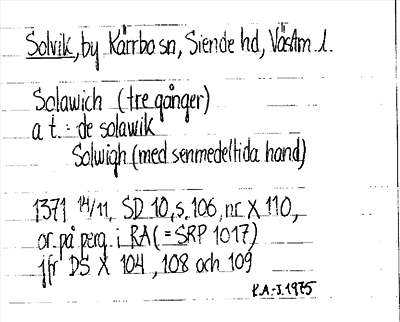 Solvik, by Kärrbo sn, Siende hd, Västm. l.
Solawich (tre gånger)
a t.: de solawik
Solwigh (med senmedeltida hand)
1371 14/11, SD 10, s. 106, nr X 110,
or. på perg. i RA (= SRP 1017)
jfr DS X 104, 108 och 109
K.A.-J. 1975